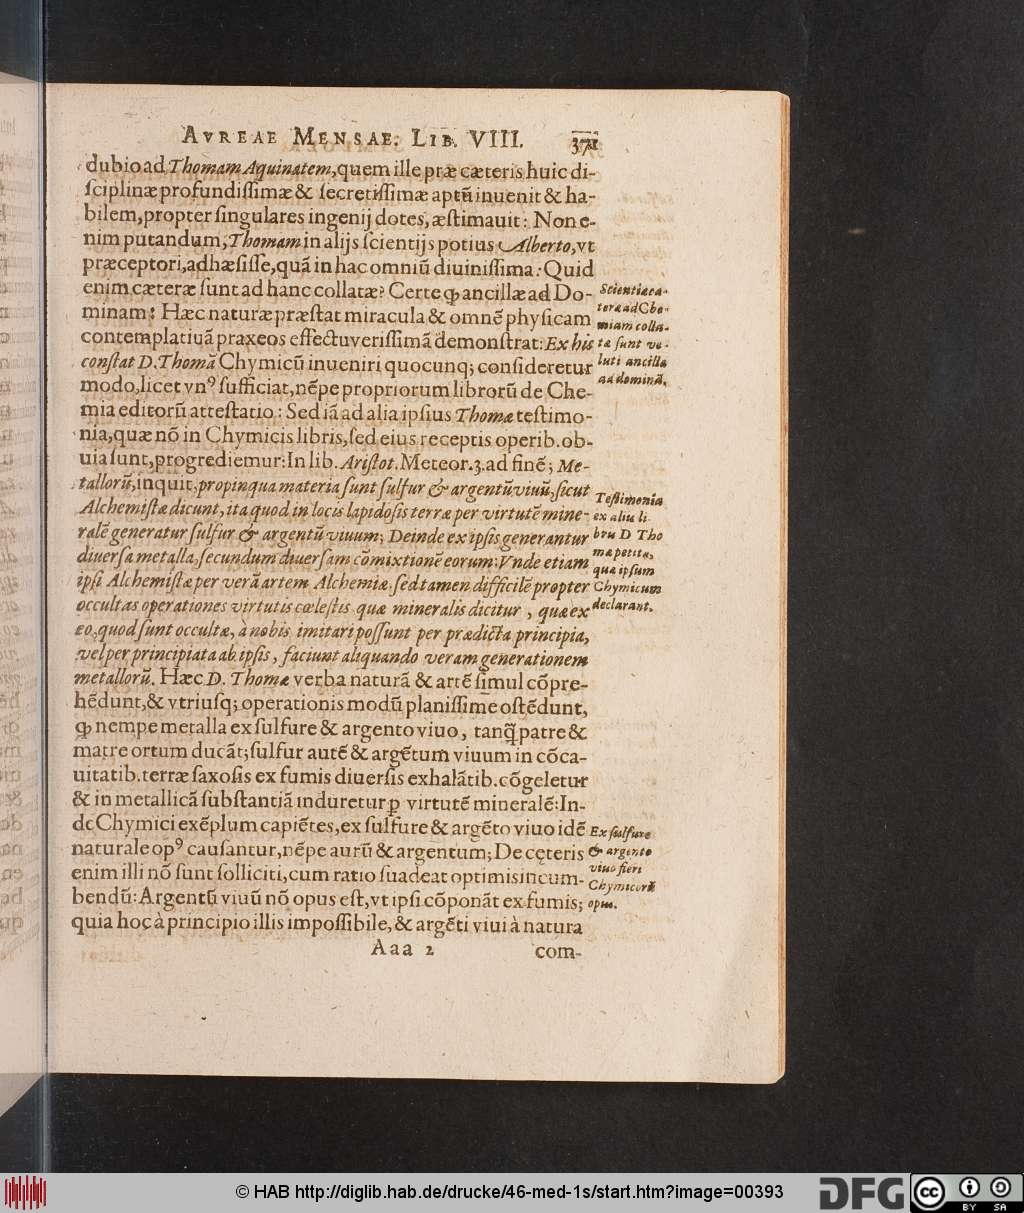 AVREAE MENSAE. LIB. VIII. 371
dubio ad Thomam Aquinatem, quem ille præ cæteris huic di-
ſciplinæ profundiſſimæ & ſecretiſſimæ aptũ inuenit & ha-
bilem, propter ſingulares ingenij dotes, æſtimauit: Non e-
nim putandum, Thomam in alijs ſcientijs potius Alberto, vt
præceptori, adhæſiſſe, quã in hac omniũ diuiniſſima: Quid
enim cæteræ ſunt ad hanc collatæ? Certe ꝙ ancillæ ad Do-
minam: Hæc naturæ præſtat miracula & omnẽ phyſicam
contemplatiuã praxeos effectu veriſſimã demonſtrat: Ex his
conſtat D. Thomã Chymicũ inueniri quocunq; conſideretur
modo, licet vnꝰ ſufficiat, nẽpe propriorum librorũ de Che-
mia editorũ atteſtatio: Sed iã ad alia ipſius Thomæ teſtimo-
nia, quæ nõ in Chymicis libris, ſed eius receptis operib. ob-
uia ſunt, progrediemur: In lib. Ariſtot. Meteor. 3. ad finẽ; Me-
tallorũ, inquit, propinqua materia ſunt ſulfur & argentũ viuũ, ſicut
Alchemiſtæ dicunt, ita quod in locis lapidoſis terræ per virtutẽ mine-
ralẽ generatur ſulfur & argentũ viuum; Deinde ex ipſis generantur
diuerſa metalla, ſecundum diuerſam cõmixtionẽ eorum: Vnde etiam
ipſi Alchemiſtæ per verã artem Alchemiæ, ſed tamen difficilẽ propter
occultas operationes virtutis cœleſtis quæ mineralis dicitur, quæ ex
eo, quod ſunt occultæ, à nobis imitari poſſunt per prædicta principia,
vel per principiata ab ipſis, faciunt aliquando veram generationem
metallorũ. Hæc D. Thomæ verba naturã & artẽ ſimul cõpre-
hẽdunt, & vtriuſq; operationis modũ planiſſime oſtẽdunt,
ꝙ nempe metalla ex ſulfure & argento viuo, tanq̃ patre &
matre ortum ducãt; ſulfur autẽ & argẽtum viuum in cõca-
uitatib. terræ ſaxoſis ex fumis diuerſis exhalãtib. cõgeletur
& in metallicã ſubſtantiã induretur ꝑ virtutẽ mineralẽ: In-
de Chymici exẽplum capiẽtes, ex ſulfure & argẽto viuo idẽ
naturale opꝰ cauſantur, nẽpe aurũ & argentum; De cęteris
enim illi nõ ſunt ſolliciti, cum ratio ſuadeat optimis incum-
bendũ: Argentũ viuũ nõ opus eſt, vt ipſi cõponãt ex fumis;
quia hoc à principio illis impoſſibile, & argẽti viui à natura
Aaa 2 com-
Scientiæ cæ-
teræ ad Che-
miam colla-
tæ ſunt ve-
luti ancillæ
ad dominã.
Teſtimonia
ex aliis li-
bris D Tho
mæ petita,
quæ ipſum
Chymicum
declarant.
Ex ſulfure
& argento
viuo fieri
Chymicorũ
opus.
© HAB http://diglib.hab.de/drucke/46-med-1s/start.htm?image=00393
DFG
cc BY SA